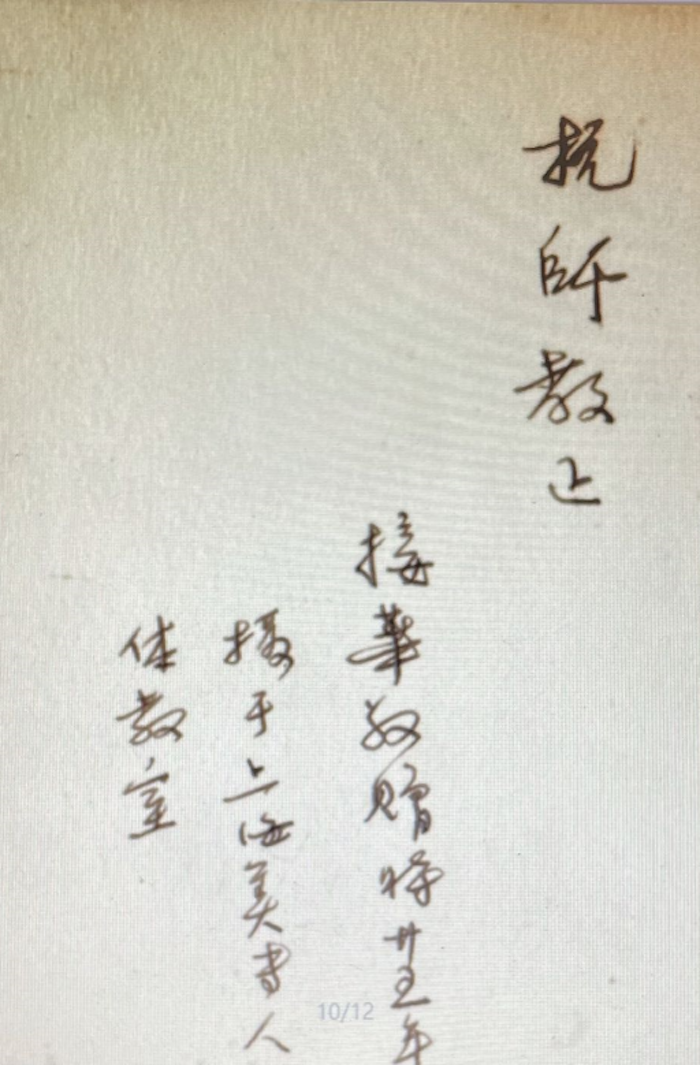 抗師教正
接華敬贈時廿五年
攝于上海美专人
体教室
10/12